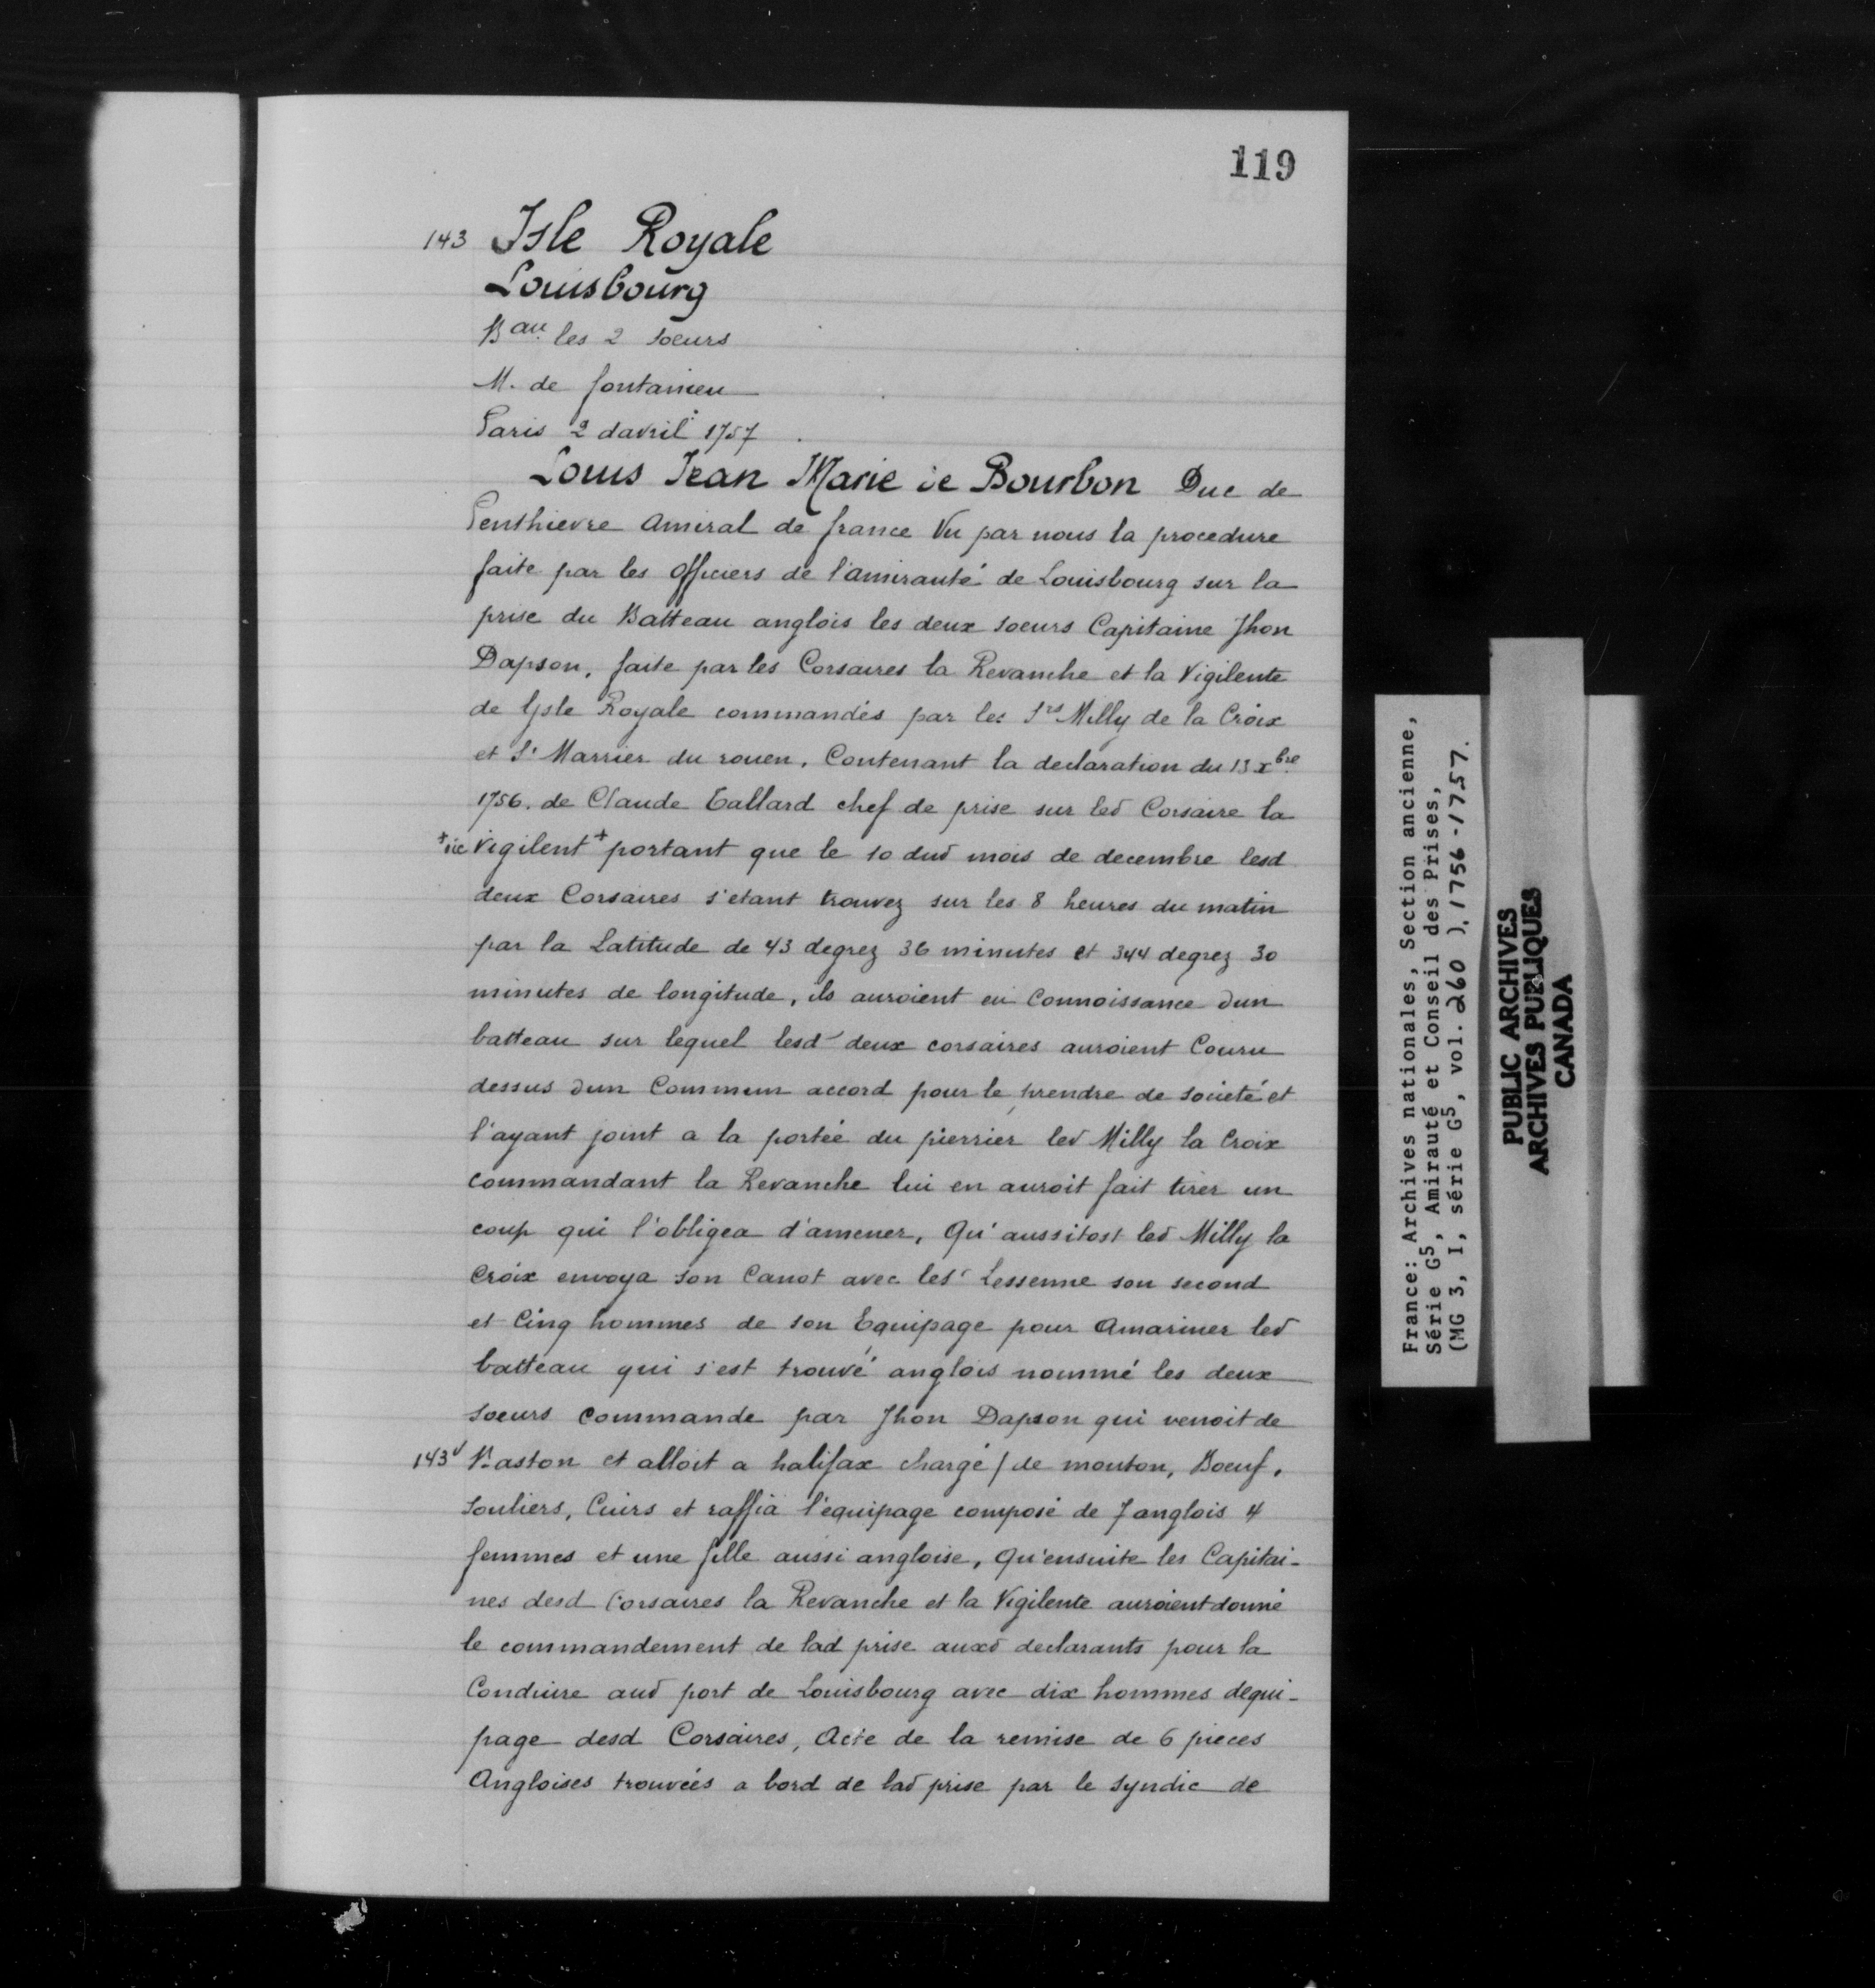 119
143 Isle Royale
Louisbourg
Bau. les 2 soeurs
M. de fontanieu
Paris 2 davril 1757
Louis Jean Marie de Bourbon Duc de
Penthievre Amiral de france Vu par nous la procedure
faite par les officiers de l'amirauté de Louisbourg sur la
prise du Batteau anglois les deux soeurs Capitaine Jhon
Dapson, faite par les Corsaires la Revanche et la Vigilente
de Ysle Royale commandés par les Srs Milly de la Croix
et Sr Marrier du rouen, Contenant la declaration du 13 xbre
1756. de Claude Tallard chef de prise sur led Corsaire la
+sic vigilent+ portant que le 10 dud mois de decembre lesd
deux Corsaires s'etant trouvez sur les 8 heures du matin
par la Latitude de 43 degrez 36 minutes et 344 degrez 30
minutes de longitude, ils auroient eu Connoissance dun
batteau sur lequel lesd deux corsaires auroient Couru
dessus dun Commun accord pour le prendre de societé et
l'ayant joint a la portée du pierrier led Milly la Croix
commandant la Revanche lui en auroit fait tirer un
coup qui l'obligea d'amener, Qu'aussitost led Milly la
Croix envoya son Canot avec le Sr Lessenne son second
et Cinq hommes de son Equipage pour Amariner led
batteau qui s'est trouvé anglois nommé les deux
soeurs commande par Jhon Dapson qui venoit de
143v Baston et alloit a halifax chargé / de mouton, Boeuf,
souliers, Cuirs et raffia l'equipage composé de 7 anglois 4
femmes et une fille aussi angloise, Qu'ensuite les Capitai-
nes desd Corsaires la Revanche et la Vigilente auroient donné
le commandement de lad prise auxd declarants pour la
Conduire aud port de Louisbourg avec dix hommes dequi-
page desd Corsaires, Acte de la remise de 6 pieces
Angloises trouvées a bord de lad prise par le syndic de
France: Archives nationales, Section ancienne,
Série G5, Amirauté et Conseil des Prises,
(MG 3, I, série G5, vol. 260 ), 1756-1757.
PUBLIC ARCHIVES
ARCHIVES PUBLIQUES
CANADA